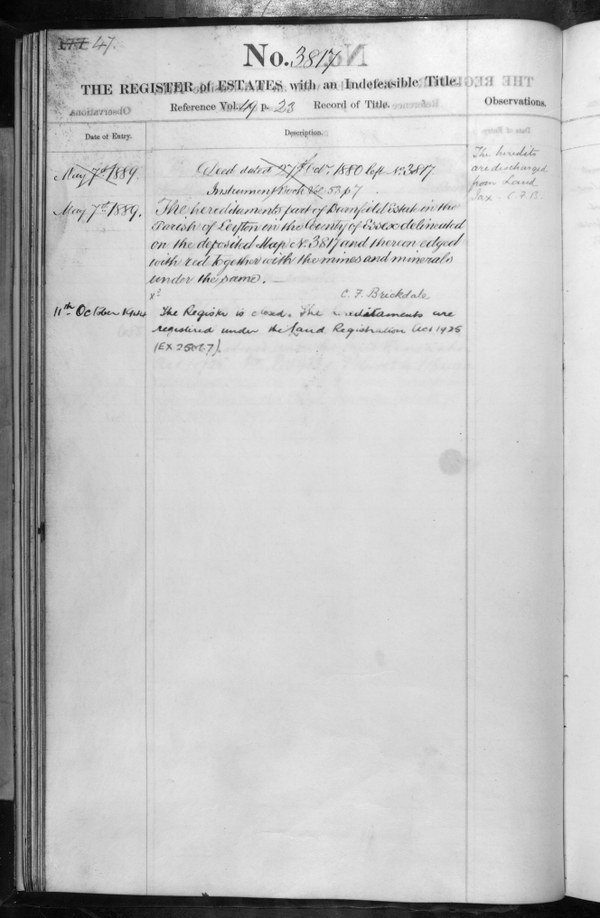 177 47.
No. 3817
THE REGISTER of ESTATES with an Indefeasible Title.
Reference Vol. 19 p. 23 Record of Title.
Observations.
Date of Entry.
Description.
May 7th 1889. Deed dated 27th Octr. 1880 left No. 3817
Instrument Book 53 p 7
May 7th 1889. The hereditaments part of Estate in the
Parish of Leyton in the County of Essex delineated
on the deposited Map No. 3817 and thereon edged
with red together with the mines and minerals
under the same.
C. F. Brickdale
11th October The Register is closed. The hereditaments are
registered under the Land Registration Act 1925
(EX
The heredits
are discharged
from Land
Tax. C.F.B.